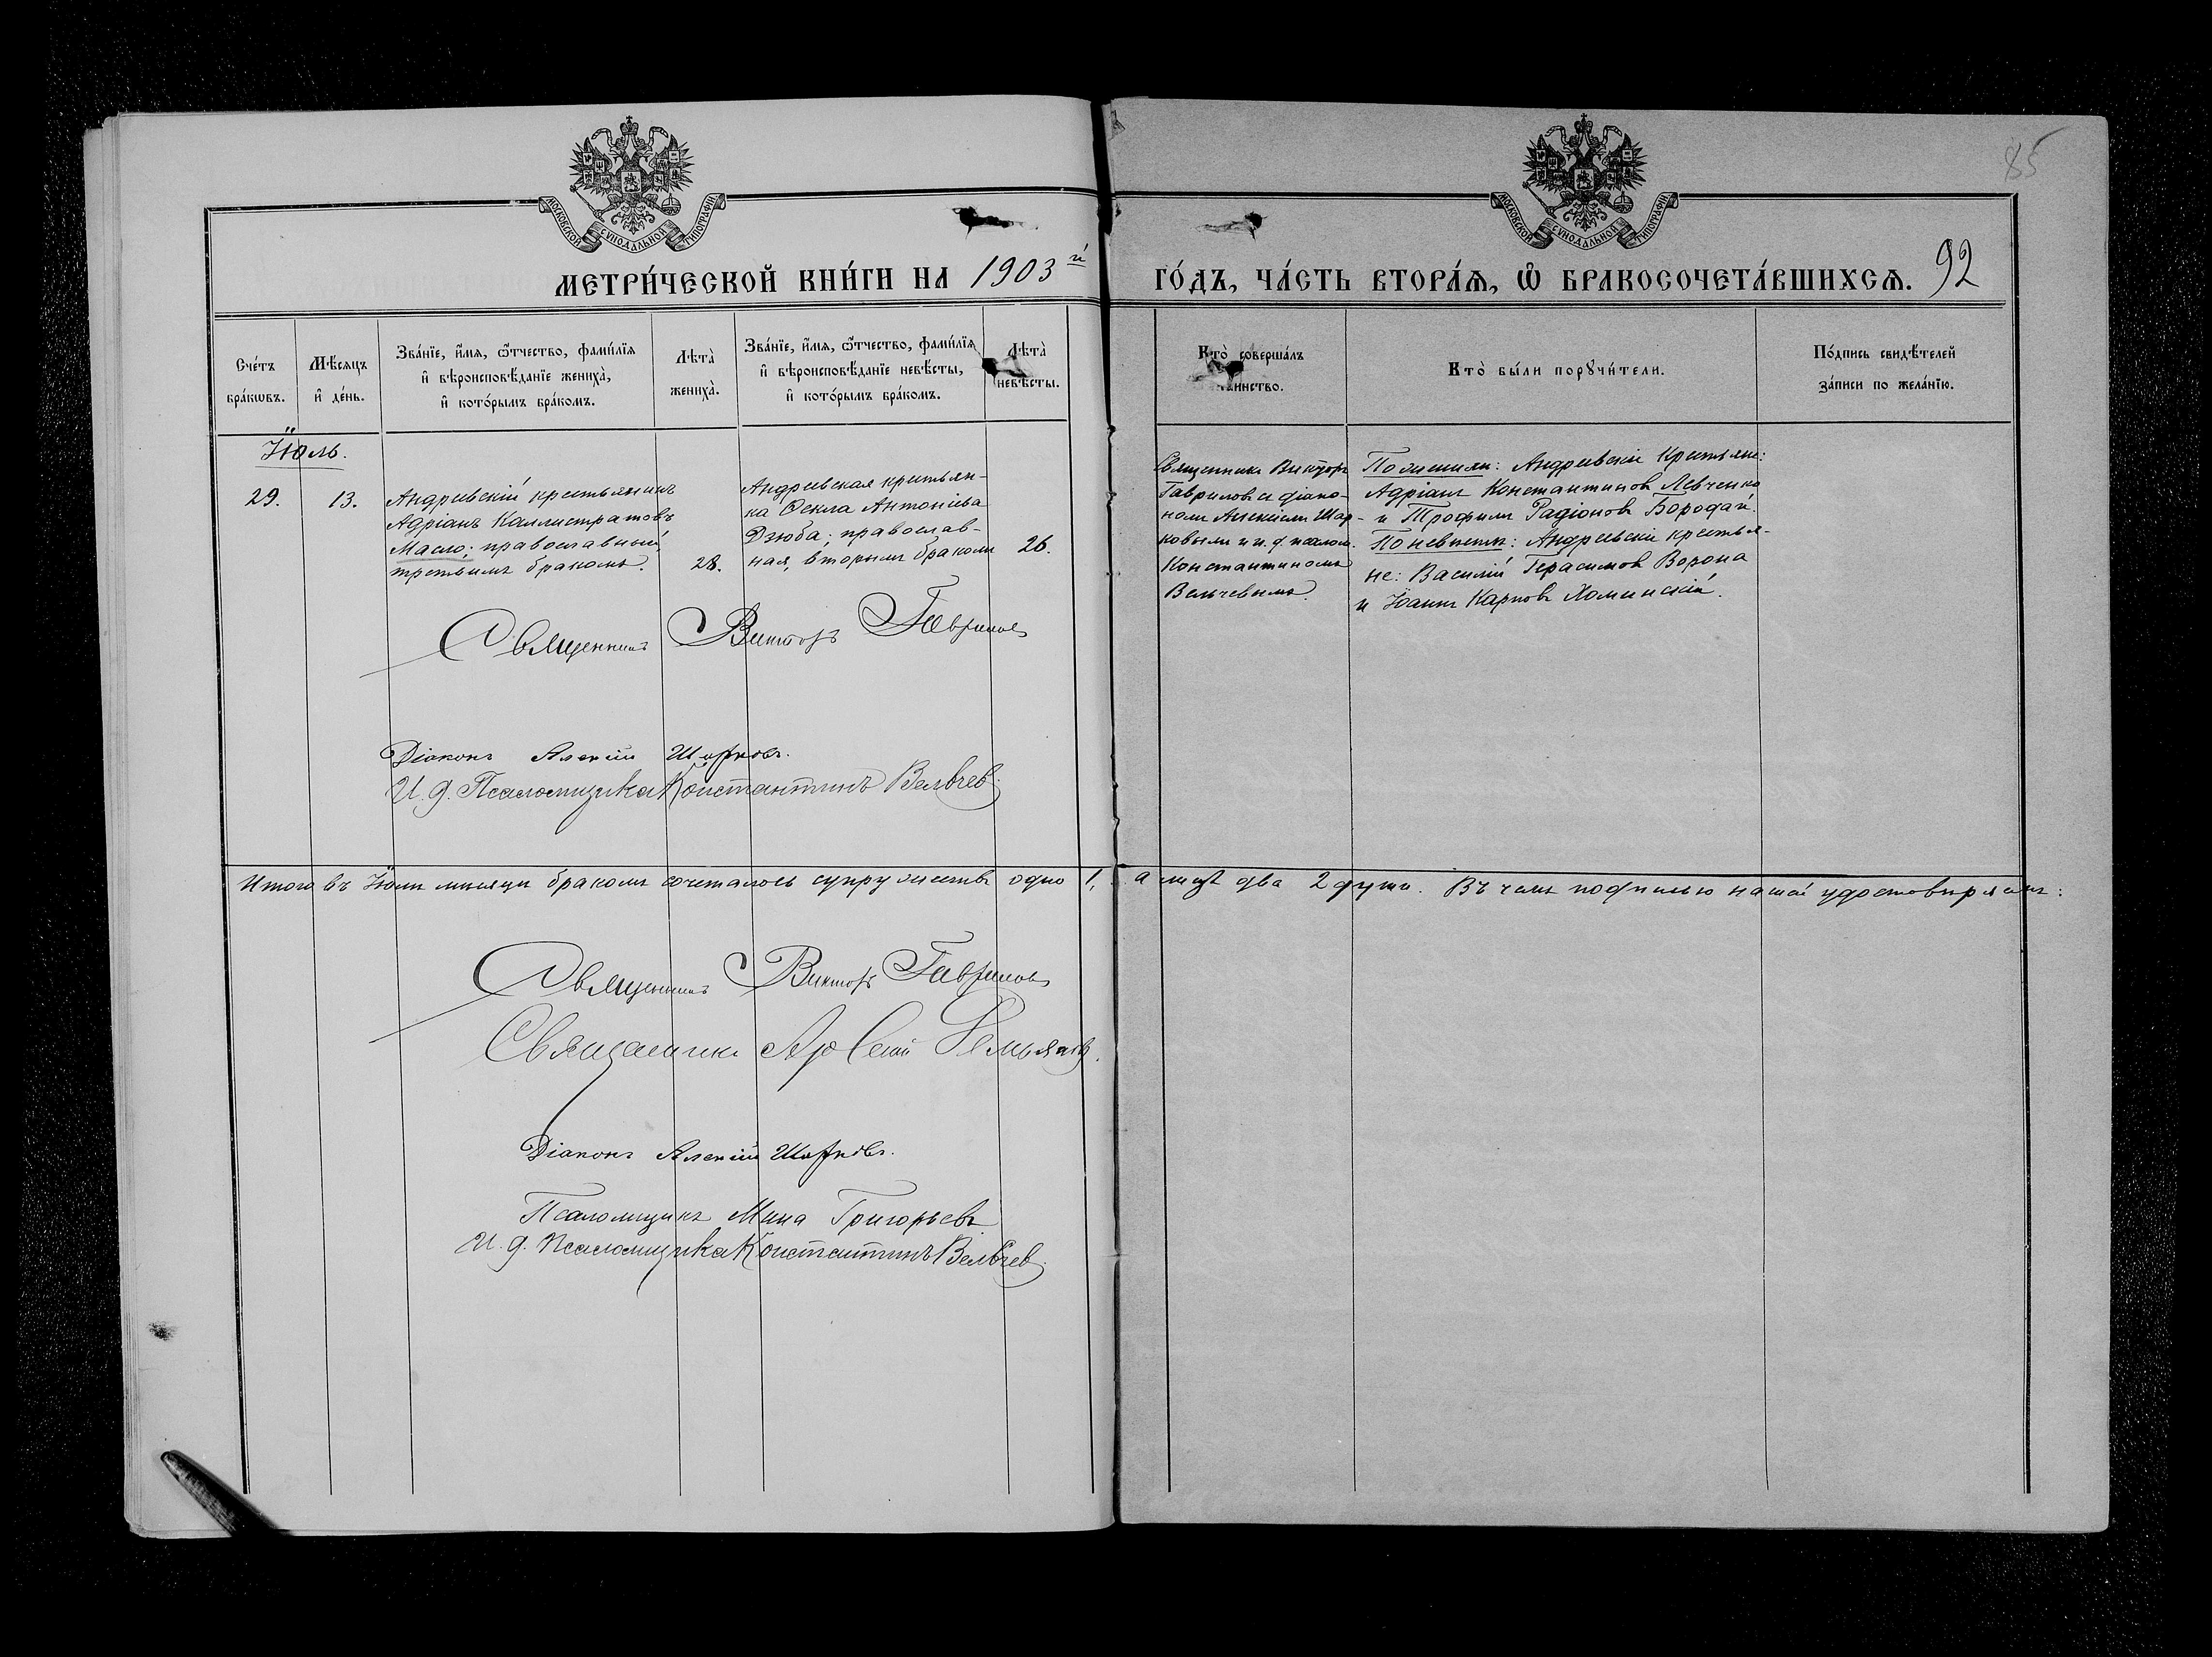 МОСКОВСКОЙ СѴНОДАЛЬНОЙ ТИПОГРАФІИ
МОСКОВСКОЙ СѴНОДАЛЬНОЙ ТИПОГРАФІИ
85
МЕТРИ́ЧЕСКОЙ КНИ́ГИ НА 1903й
ГО́ДЪ, ЧА́СТЬ ВТОРА́Я, Ѿ БРАКОСОЧЕТА́ВШИХСЯ. 92
Сче́тъ бра́кѡвъ.
Мѣ́сяцъ и҆ де́нь.
Зва́нїе, и҆́мя, ѻ҆́тчество, фами́лїя и҆ вѣроисповѣ́данїе жениха̀, и҆ кото́рымъ бра́комъ.
Лѣта̀ жениха̀.
Зва́нїе, и҆́мя, ѻ҆́тчество, фами́лїя и҆ вѣроисповѣ́данїе невѣ́сты, и҆ кото́рымъ бра́комъ.
Лѣта̀ невѣ́сты.
Кто̀ соверша́лъ таинство.
Кто̀ бы́ли порꙋчи́тели.
По́дпись свидѣ́телей за́писи по жела́нїю.
Іюль.
29.
13.
Андреевскій крестьянинъ
Адріанъ Каллистратовъ
Масло; православный,
третьимъ бракомъ.
28.
Андреевская крестьян-
ка Ѳекла Антоніева
Дзюба; православ-
ная, вторымъ бракомъ
26.
Священникъ Викторъ
Гавриловъ съ діако-
номъ Алексіемъ Шар-
ковымъ и и. д. псалом.
Константиномъ
Вельчевымъ.
По женихѣ: Андреевскіе крестьяне:
Адріанъ Константиновъ Левченко
и Трофимъ Радіоновъ Бородай.
По невѣстѣ: Андреевскіе крестья-
не: Василій Герасимовъ Ворона
и Іоаннъ Карповъ Хоминскій.
Священникъ Викторъ Гавриловъ
Діаконъ Алексій Шарковъ.
И. д. Псаломщика Константинъ Вельчев
Итого въ Іюлѣ мѣсяцѣ бракомъ сочеталось супружествъ одно 1, а лицъ два 2 души. Въ чемъ подписью нашей удостовѣряемъ:
Священникъ Викторъ Гавриловъ
Священникъ
Діаконъ Алексій Шарковъ.
Псаломщикъ Мина Григорьевъ
И. д. Псаломщика Константинъ Вельчев